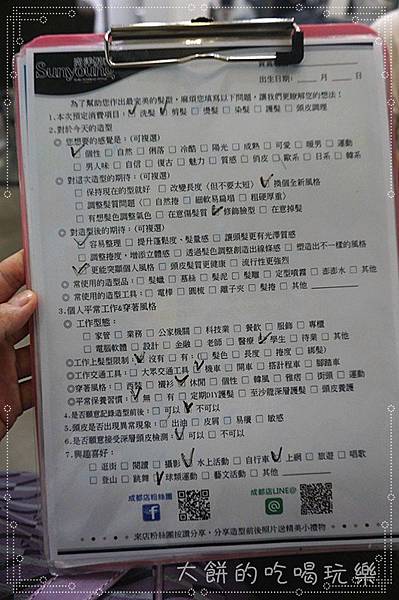 Sunyoung
出生日期: ____ 月 ____ 日
為了幫助您作出最完美的髮型,麻煩您填寫以下問題,讓我們更瞭解您的想法!
1.本次預定消費項目: □洗髮 □剪髮 □燙髮 □染髮 □護髮 □頭皮調理
2.對於今天的造型
◎您想要的感覺是: (可複選)
□個性 □自然 □俐落 □冷酷 □陽光 □成熟 □可愛 □暖男 □運動
□男人味 □自信 □復古 □魅力 □質感 □俏皮 □歐系 □日系 □韓系
◎對這次造型的期待: (可複選)
□保持現在的型就好 □改變長度(但不要太短) □換個全新風格
□調整髮質問題 (□自然捲 □細軟易扁塌 □粗硬厚重)
□有想髮色調氣色 □在意傷髮質 □修飾臉型 □在意掉髮
◎對造型後的期待: (可複選)
□容易整理 □提升蓬鬆度、髮量感 □讓頭髮更有光澤質感
□調整捲度,增添立體感 □透過髮色調整創造出線條感 □塑造出不一樣的風格
□更能突顯個人風格 □頭皮髮質更健康 □流行性更強烈
◎常使用的造型品: □髮蠟 □慕絲 □髮泥 □髮雕 □定型噴霧 □澎澎水 □其他
◎常使用的造型工具: □電棒 □圓梳 □離子夾 □髮捲 □其他 ____
3.個人平常工作&穿著風格
◎工作型態:
□家管 □業務 □公家機關 □科技業 □餐飲 □服飾 □專櫃
□電腦軟體 □設計 □金融 □老師 □醫療 □學生 □待業 □其他
◎工作上髮型限制: □沒有 □有: (□髮色 □長度 □捲度 □綁髮)
◎工作交通工具: □大眾交通工具 □機車 □開車 □搭計程車 □腳踏車
◎穿著風格: □西裝 □襯衫 □休閒 □個性 □韓風 □雅痞 □街頭 □運動
◎平常保養習慣: □無 □有 □定期DIY護髮 □至沙龍深層護髮 □頭皮養護
4.是否願意記錄造型前後: □可以 □不可以
5.頭皮是否出現異常現象: □出油 □皮屑 □易癢 □敏感
6.是否願意接受深層頭皮檢測: □可以 □不可以
7.興趣喜好:
□逛街 □閱讀 □攝影 □水上活動 □自行車 □上網 □旅遊 □唱歌
□登山 □跳舞 □球類運動 □藝文活動 □其他 ____
成都店粉絲團
成都店LINE@
來店粉絲團按讚分享,分享造型前後照片送精美小禮物
大餅的吃喝玩樂